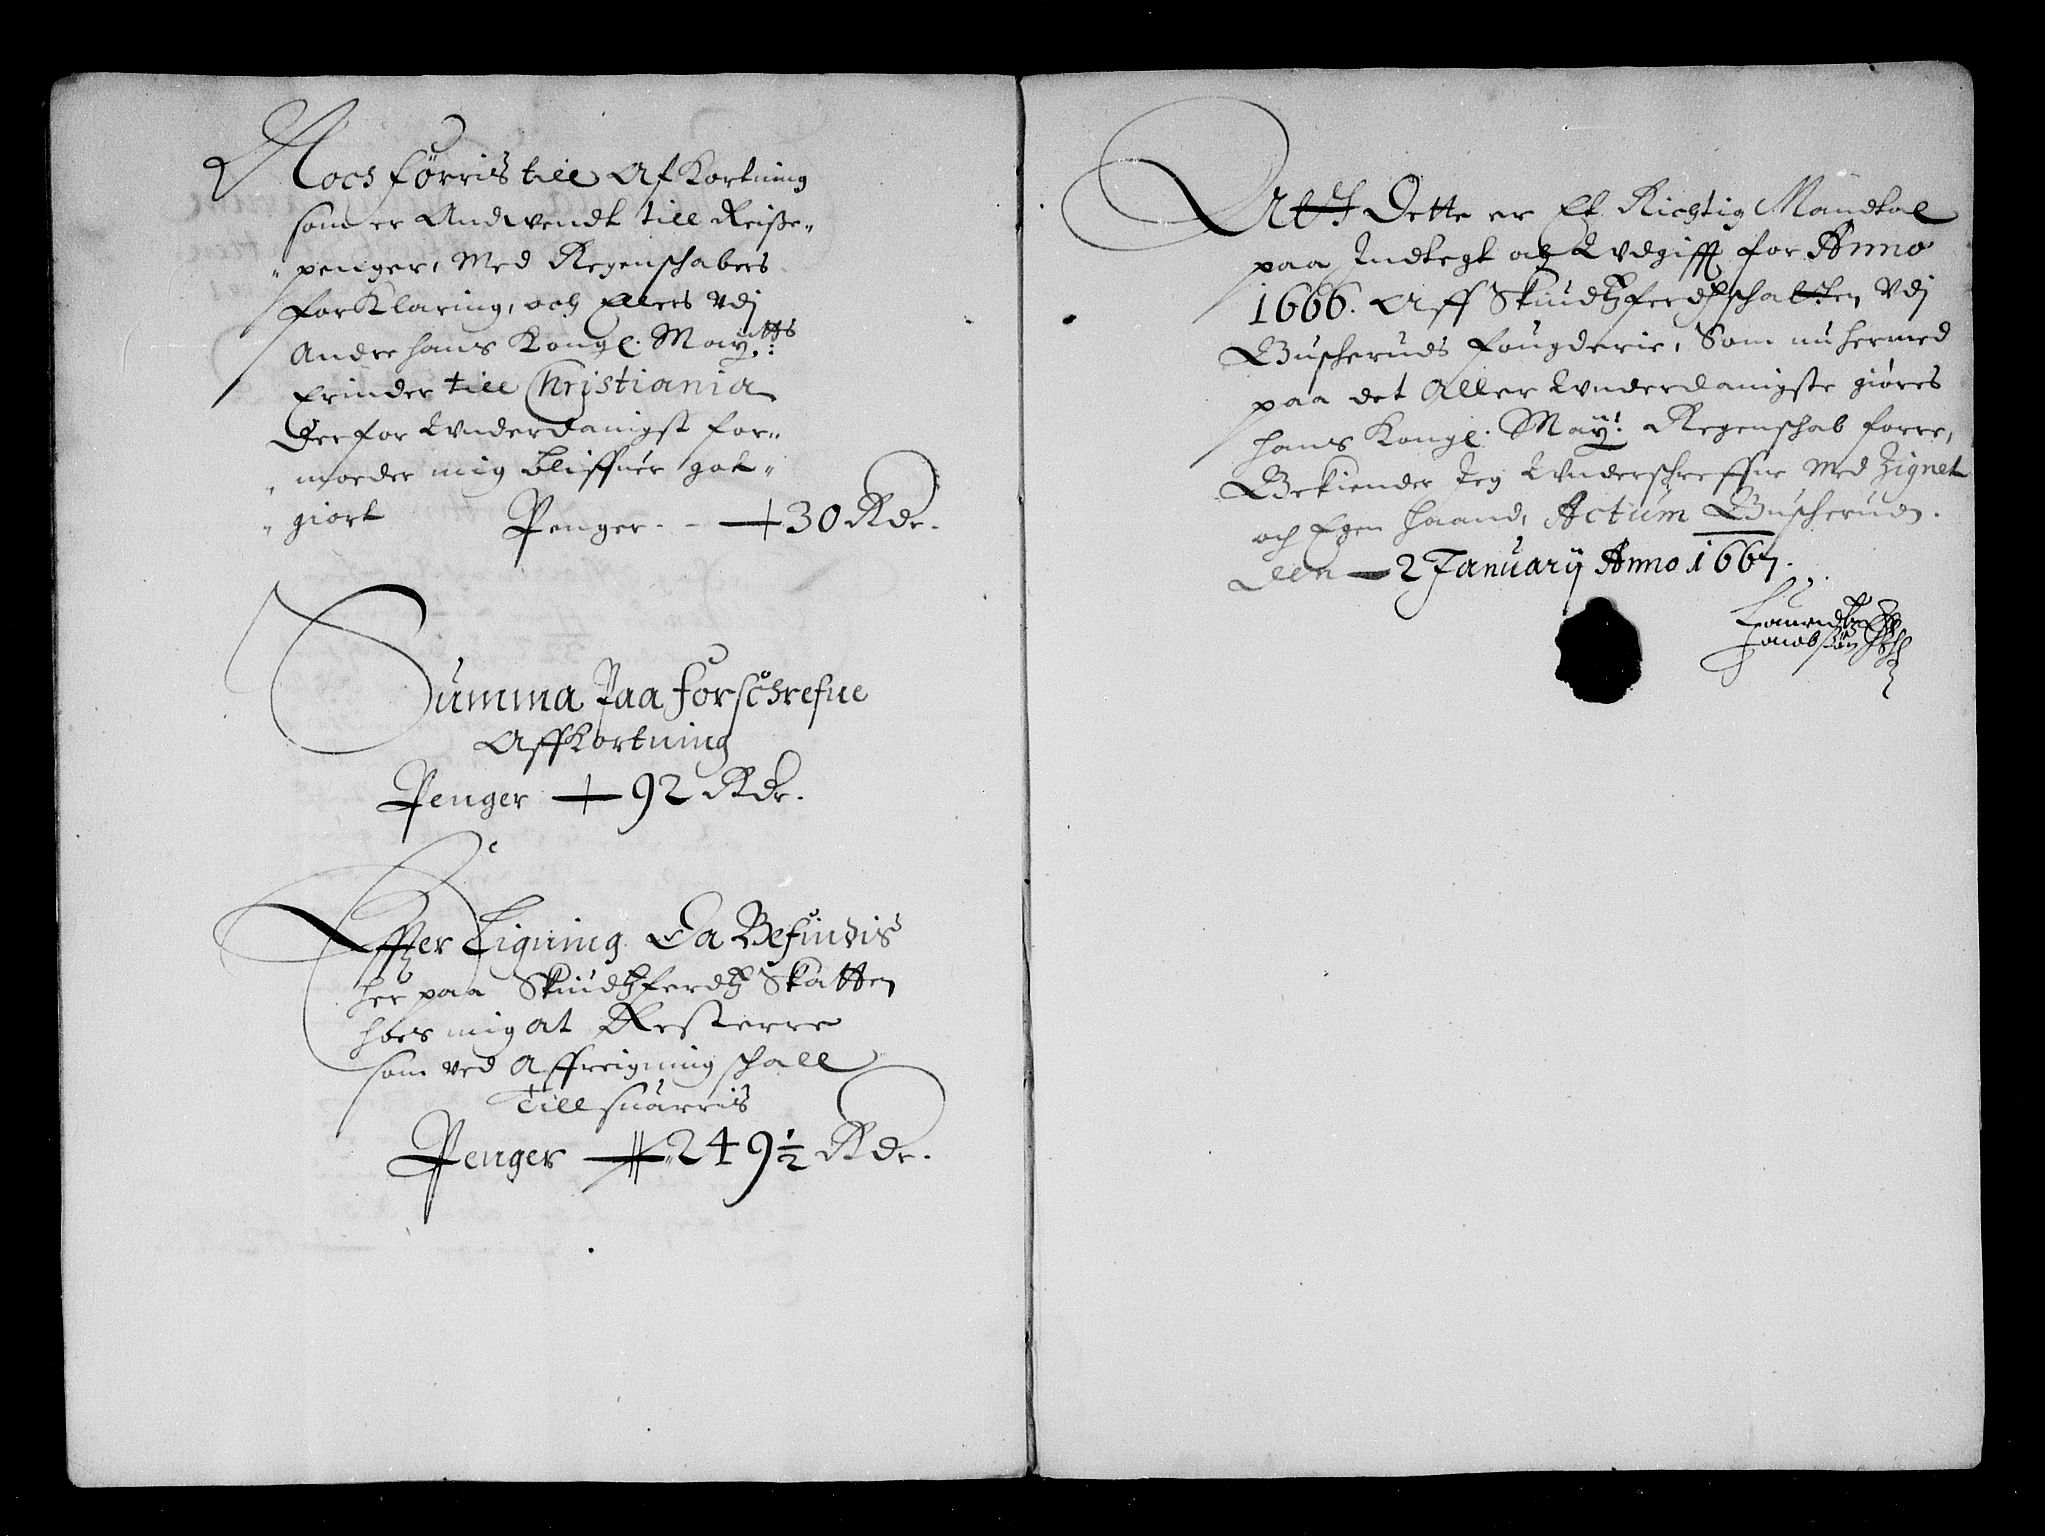 Noch førris till Af Kortning
som er Andwendt till Reisse-
penger, med Regenschabers
forKlaring, och Ellers Vdj
Andre hans Kongl. May:tts
Erinder till Christiania
Derfor Vnderdanigst for-
moeder mig bliffuer got-
giort
Penger - 30 Rdr.
Summa Paa forschrefne
AffKortning
Penger 92 Rdr.
Effter Ligning Da Befindis
her paa Skiudtzferdtz Skatten
hoes mig at Resterre
som ved Affreigning schall
Till suarris
Penger 249½ Rdr.
Att Dette er Et Richtig Mandtal
paa Indtegt och Vdgifft for Anno
1666. Aff Skiudtzferdtzschatten Vdj
Buscheruds fougderie, Som nu hermed
paa det Aller Vnderdanigste giøres
hans Kongl. May: Regenschab forre,
Bekiender Jeg Vnderschreffne Med Zignet
och Egen haand, Actum Buscherud.
Den 2 January Anno 1667.
Lauridtz
Jacobsøn